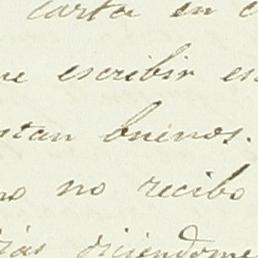 carta en c
me escribir es
stan buenos.
no no recibo
rias diciendome